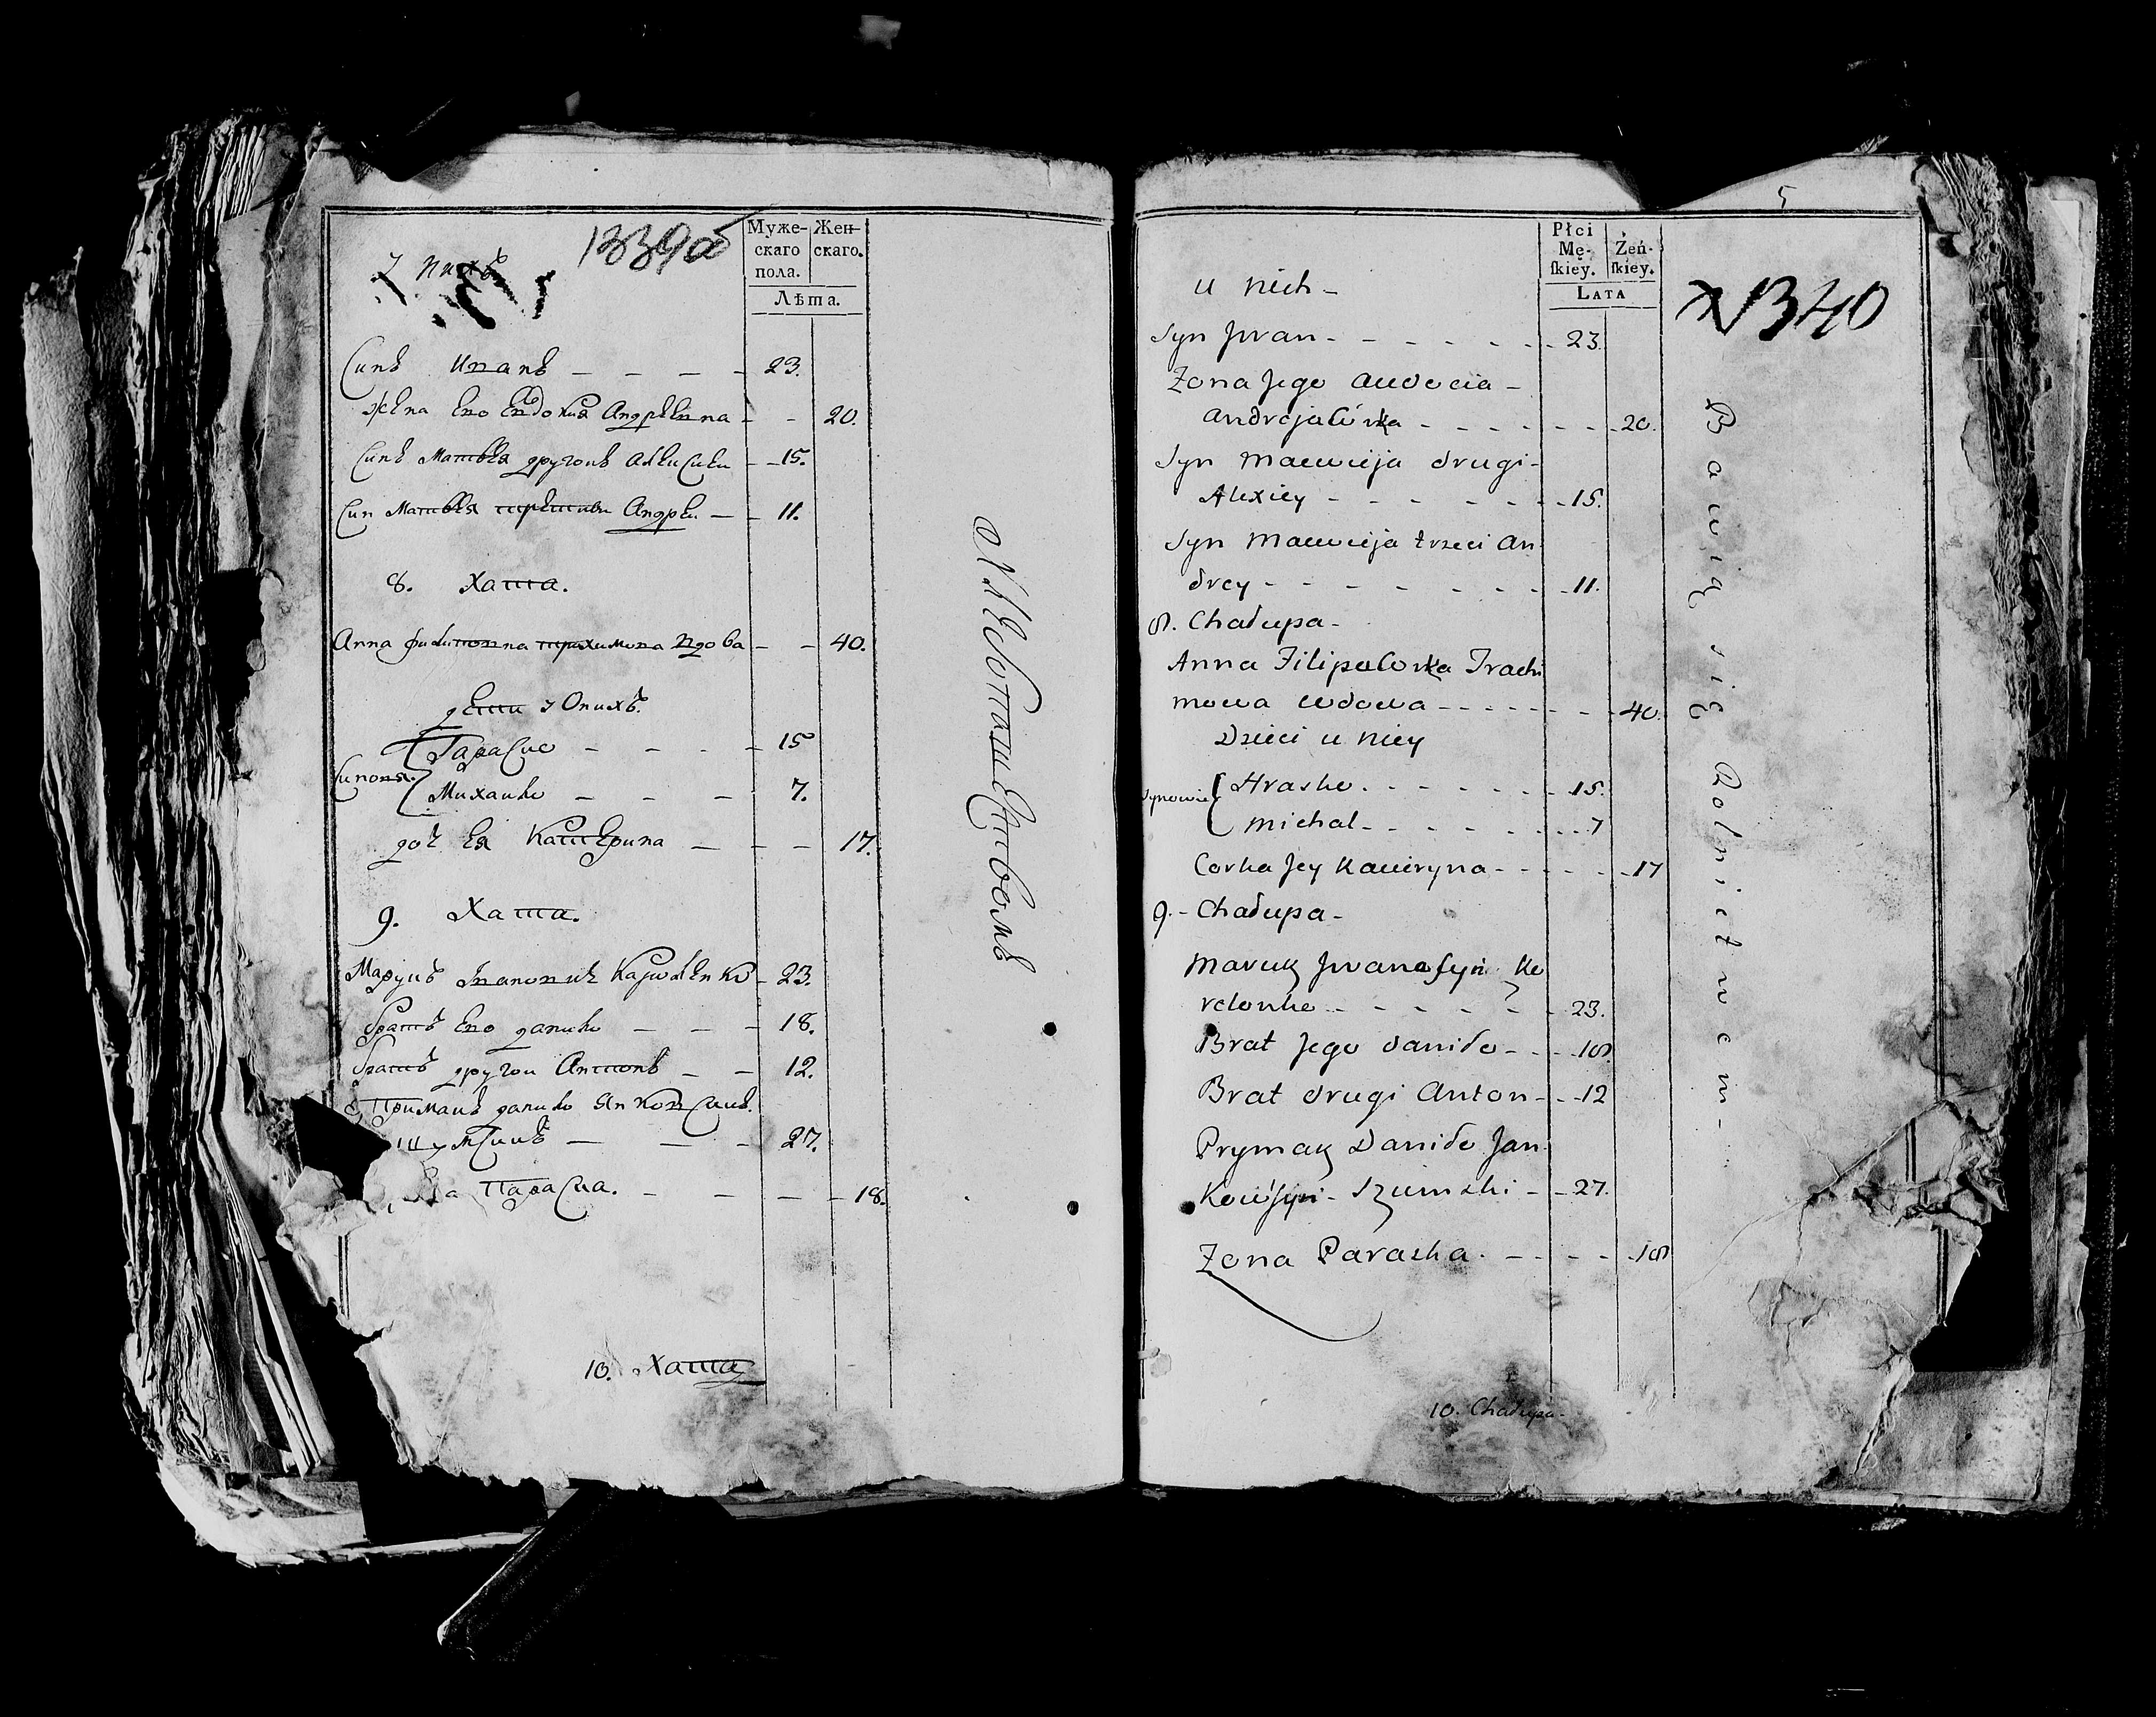 1339об
Муже-
скаго
пола.
Жен-
скаго.
Лѣта.
У нихъ
Синъ Иванъ — — — — 23.
жена Его Евдокия Андреевна — — 20.
Синъ Матвея другоий Алексией — — 15.
Син Матвея третиий Андрей — — 11.
8. Хата.
Анна Филиповна трахимова вдова — — 40.
дети у Оних.
Синовя.
Гараско — — — — 15
Михайло — — — 7.
дочь Ея Катерина — — — 17.
9. Хата.
Марукъ Иванович Короленко — 23.
Братъ Его данило — — — 18.
Братъ другои Антонъ — — 12.
Примакъ данило Янков Синъ
— — — 27.
Параска. — — — — 18.
10. Хата
5
Płci
Mę-
ſkiey.
Żeń-
ſkiey.
Lata
1340
u nich -
Syn Jwan - - - - - - - 23.
Żona Jego Audocia -
Andrejowka - - - - - - - 20.
Syn Matwieja drugi -
Alexiey - - - - - - 15.
Syn Matwieja trzeci An
drey - - - - - - - - 11.
8. Chałupa -
Anna Filipowka Trachi
mowa wdowa - - - - - - - 40.
Dzieci u niey
Synowie
Hrasko. - - - - - - 15.
Michal - - - - - - - - 7
Corka Jey Katiryna - - - - - 17
9. - Chałupa -
Maruk Jwana syn Ko
relonko - - - - - - 23.
Brat Jego Daniło - - - 18
Brat drugi Anton - - - 12
Prymak Daniło Jan
Kow Syn - Szumski - - 27.
Żona Paraska. - - - - 18
10. Chałupa -
Bawią się Rolnictwem -